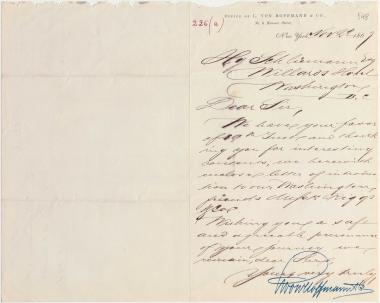 226(a)
548
OFFICE OF L. VON HOFFMANN & CO.,
New York, Nov 1867
Hy Schliemann Esq
Willards Hotel
Washington
D.C.
Dear Sir,
We have your favor
of 19th Inst and thank-
ing you for interesting
contents, we herewith
enclose letter of introduc
tion to our Washington
friends Mess Riggs
& Co
Wishing you a safe
and agreeable pursuance
of your journey we
remain, dear Sir
Yours very truly
L von Hoffmann & Co